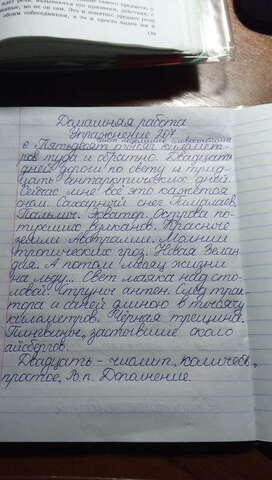 Домашняя работа
Упражнение 267
Пятьдесят тысяч километ-
ров туда и обратно. Двадцать
дней дороги по свету и трид-
цать антарктических дней.
Сейчас мне всё это кажется
сном. Сахарный снег Гималаев.
Пальмы. Экватор. Острова по-
тухших вулканов. Красные
земли Австралии. Молнии
тропических гроз. Новая Зелан-
дия. А потом месяц жизни
на льду... Свет маяка над сто-
ловой. Струны антенн. След трак-
тора и саней длиною в тысячу
километров. Чёрная трещина.
Пингвины, застывшие около
айсбергов.
Двадцать - числит., количеств.,
простое, В.п. Дополнение.